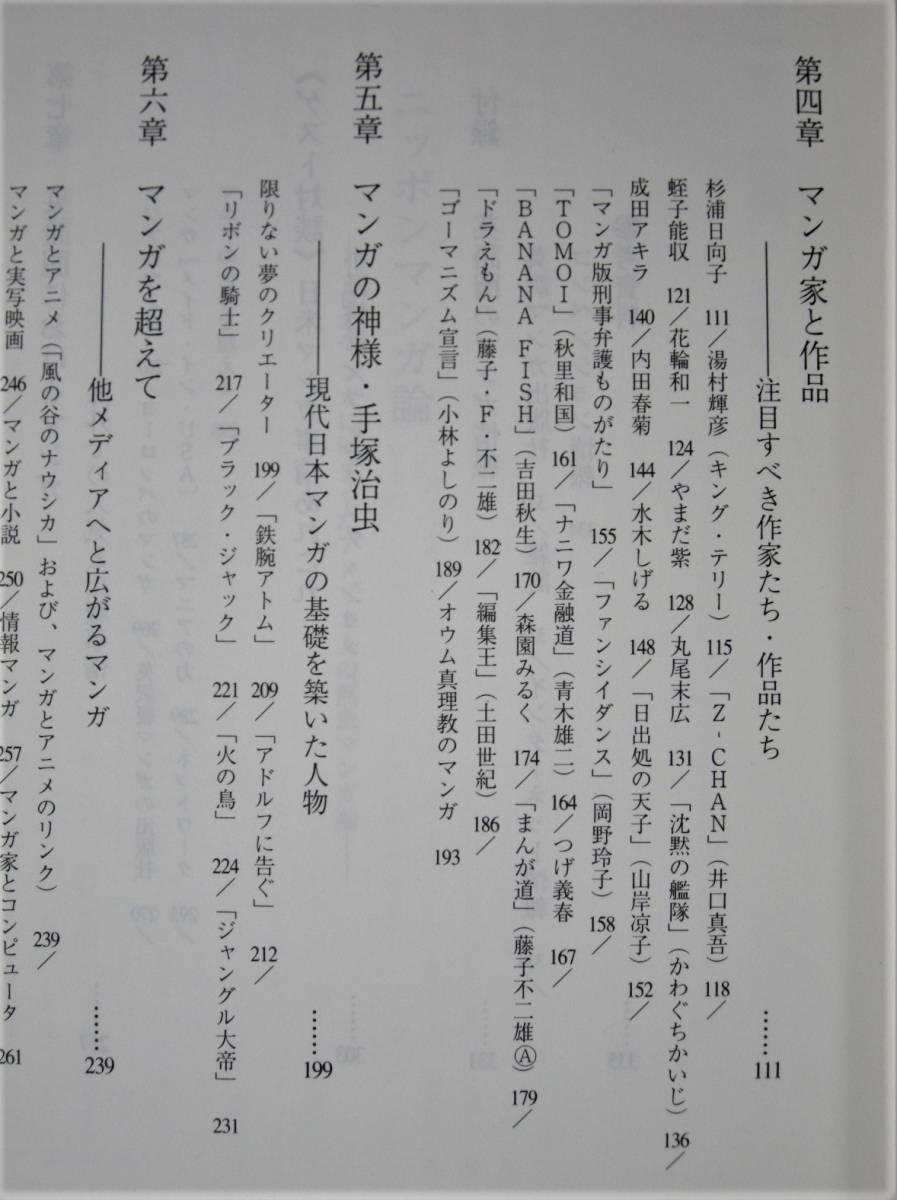 第四章　マンガ家と作品
――注目すべき作家たち・作品たち　……111
杉浦日向子　111／湯村輝彦（キング・テリー）　115／「Z-CHAN」（井口真吾）　118／
蛭子能収　121／花輪和一　124／やまだ紫　128／丸尾末広　131／「沈黙の艦隊」（かわぐちかいじ）　136／
成田アキラ　140／内田春菊　144／水木しげる　148／「日出処の天子」（山岸凉子）　152／
「マンガ版刑事弁護ものがたり」　155／「ファンシイダンス」（岡野玲子）　158／
「TOMOI」（秋里和国）　161／「ナニワ金融道」（青木雄二）　164／つげ義春　167／
「BANANA FISH」（吉田秋生）　170／森園みるく　174／「まんが道」（藤子不二雄Ⓐ）　179／
「ドラえもん」（藤子・F・不二雄）　182／「編集王」（土田世紀）　186／
「ゴーマニズム宣言」（小林よしのり）　189／オウム真理教のマンガ　193
第五章　マンガの神様・手塚治虫
――現代日本マンガの基礎を築いた人物　……199
限りない夢のクリエーター　199／「鉄腕アトム」　209／「アドルフに告ぐ」　212／
「リボンの騎士」　217／「ブラック・ジャック」　221／「火の鳥」　224／「ジャングル大帝」　231
第六章　マンガを超えて
――他メディアへと広がるマンガ　……239
マンガとアニメ（「風の谷のナウシカ」および、マンガとアニメのリンク）　239／
マンガと実写映画　246／マンガと小説　250／情報マンガ　257／マンガ家とコンピュータ　261